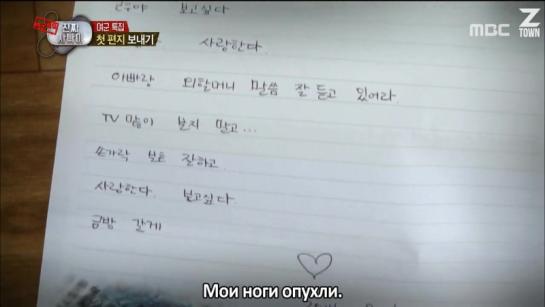 진짜 사나이
여군 특집
첫 편지 보내기
MBC
Z TOWN
보고싶다
사랑한다.
아빠랑 외할머니 말씀 잘 듣고 있어라.
TV 많이 보지 말고...
손가락 보호 잘하고.
사랑한다. 보고싶다
금방 갈게
Мои ноги опухли.